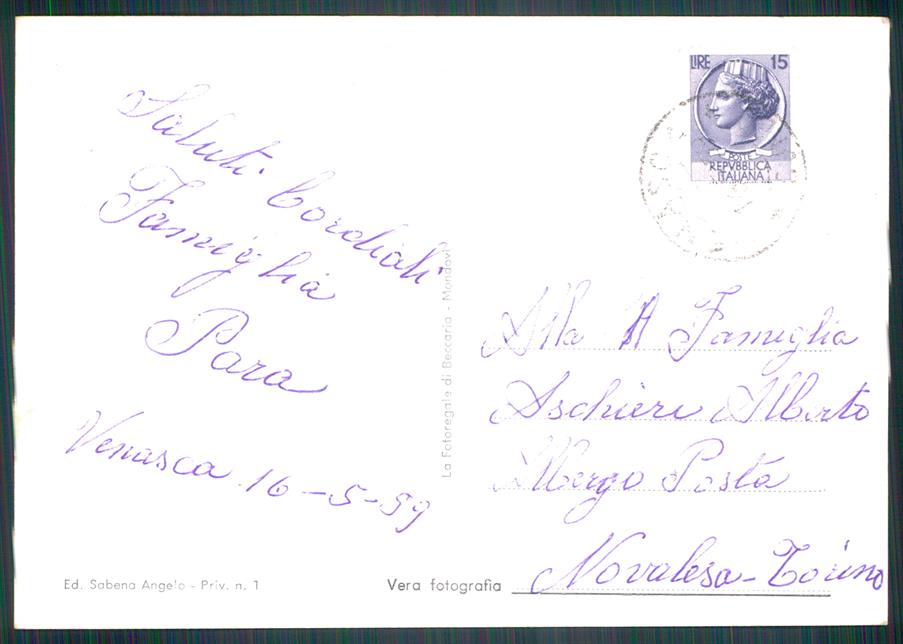 Saluti Cordiali
Famiglia
Para
Venasca 16-5-59
Ed. Sabena Angelo - Priv. n. 1
La Fotoregale di Beccaria - Mondovì
Vera fotografia
LIRE 15
POSTE
REPVBBLICA
ITALIANA
Alla Famiglia
Aschieri Alberto
Albergo Posta
Novalesa-Torino